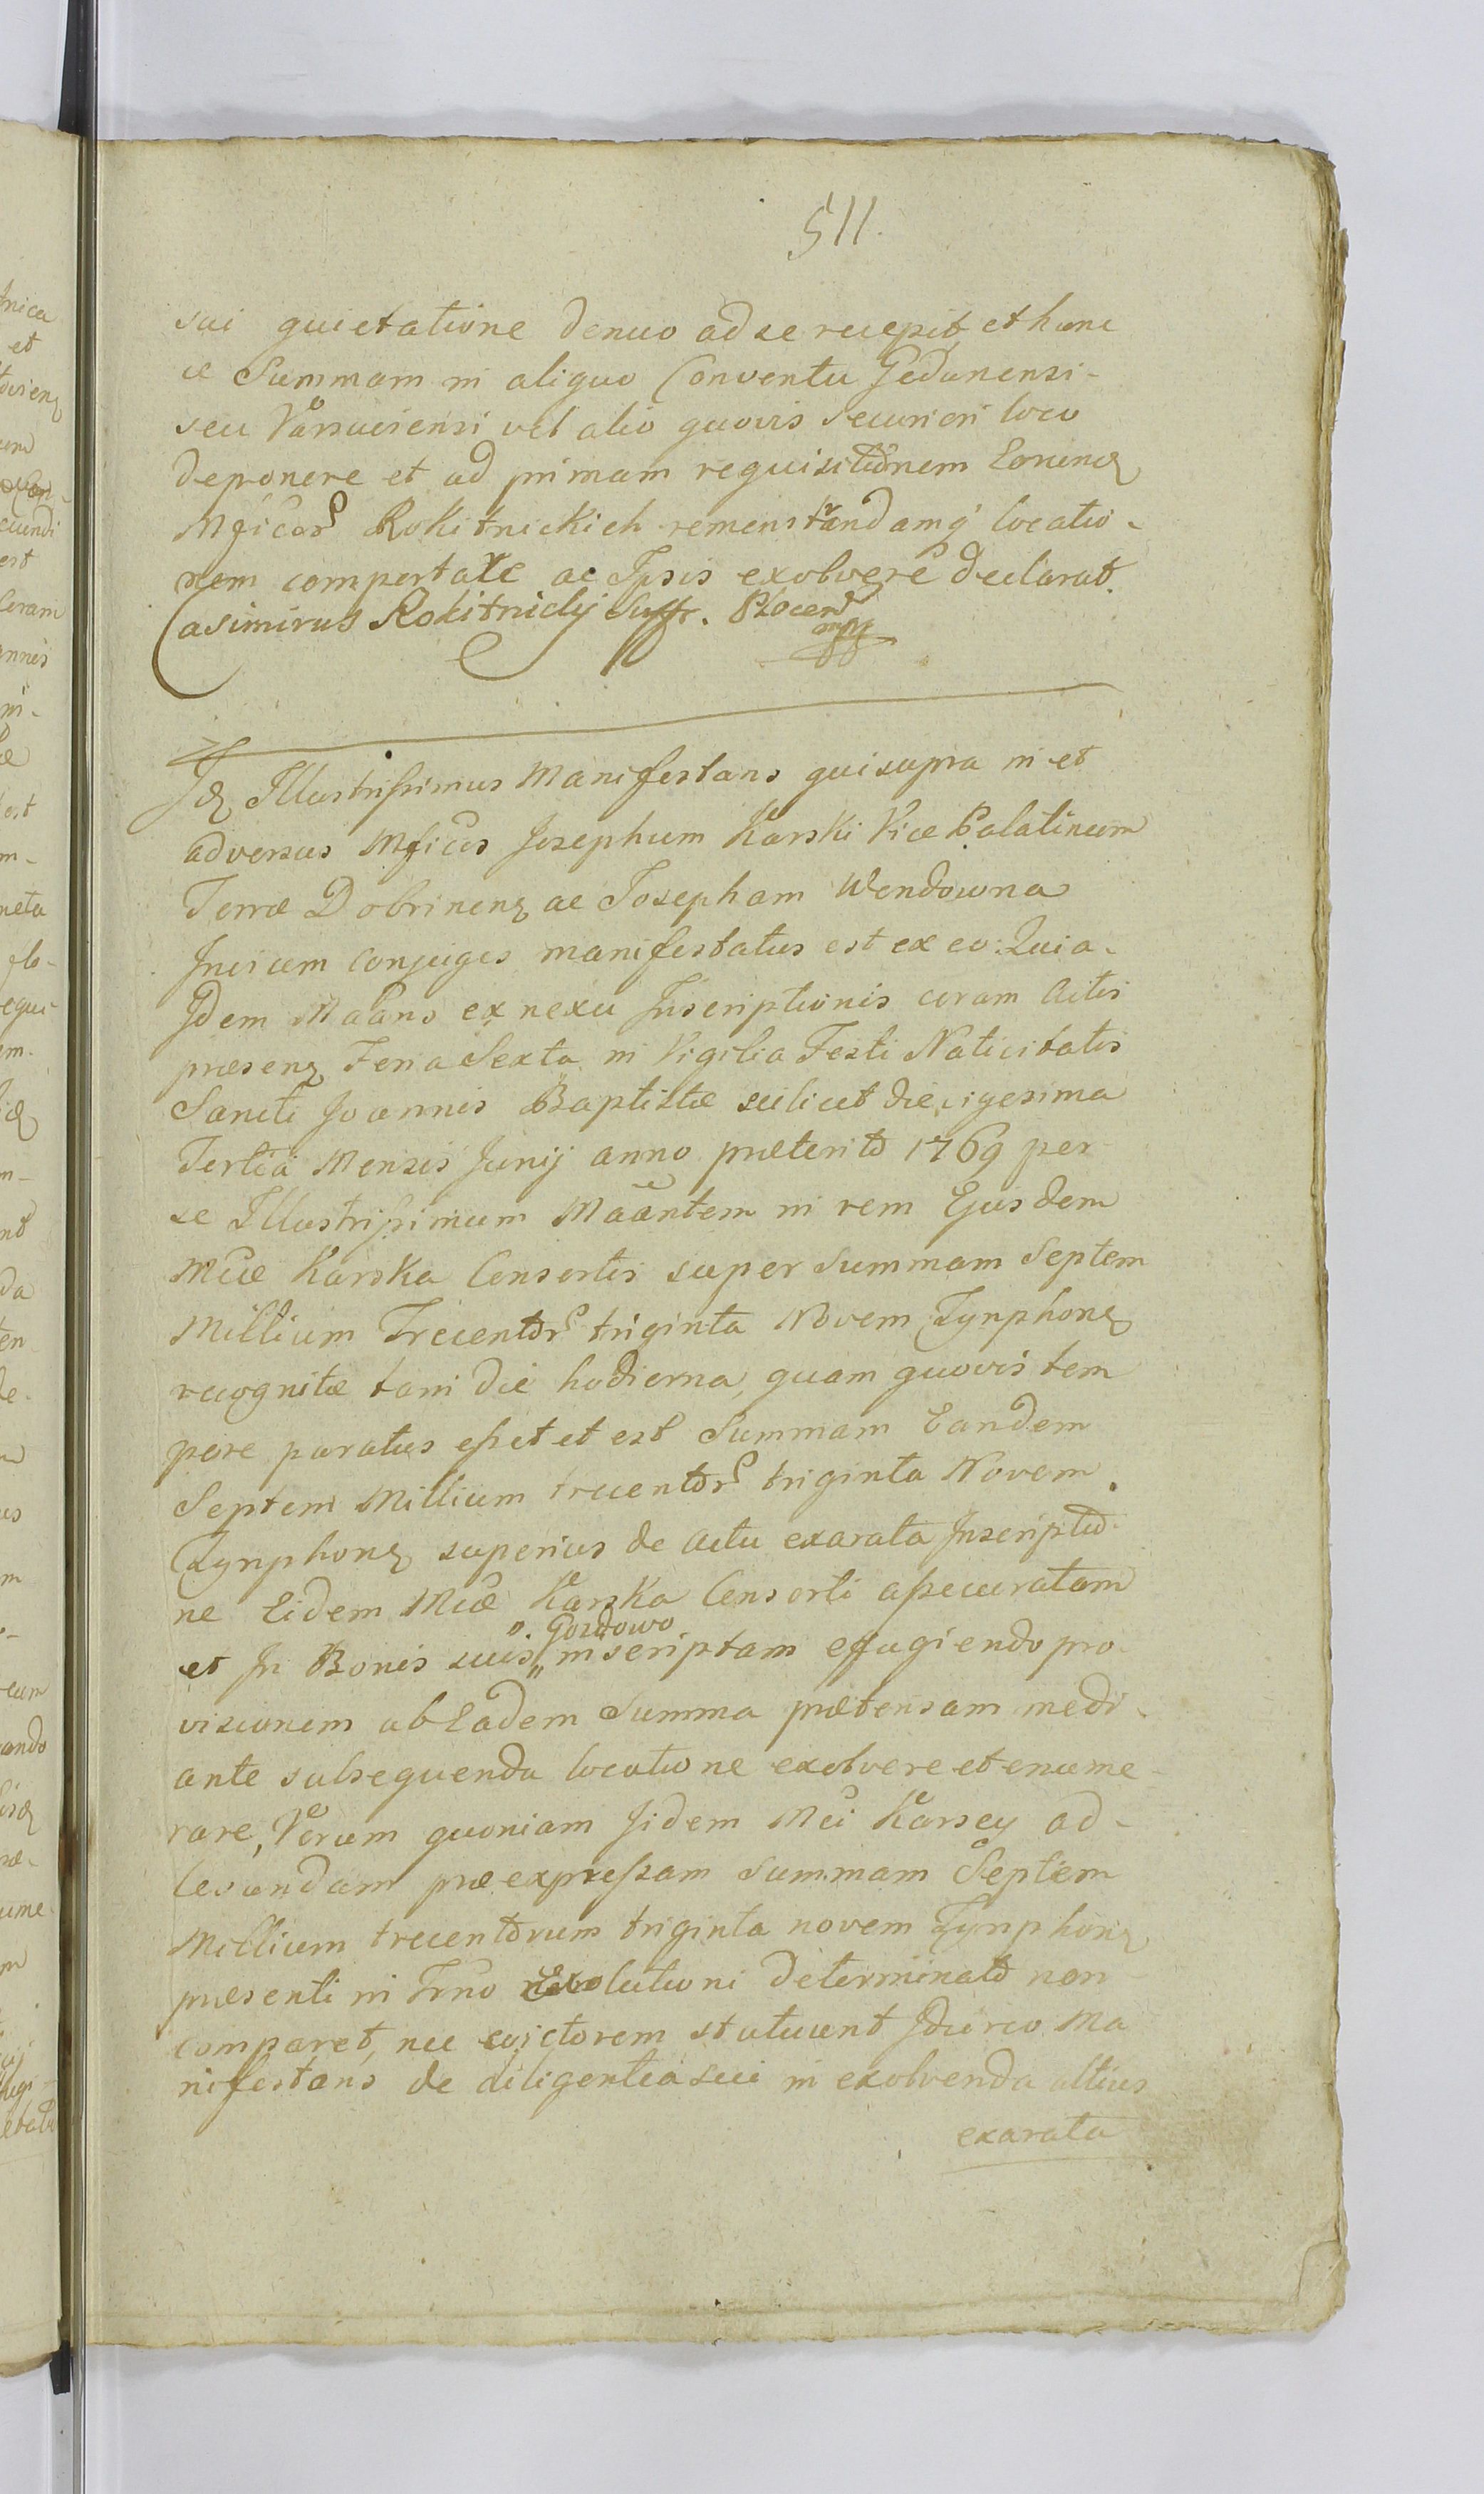 511.
sui quietatione denuo ad se recepit, et hanc
ce Summam in aliquo Conventu Gedanensi-
seu Varsaviensi vel alio quovis securiori loco
deponere et ad primam requisitionem Eorund
Mficor Rokitnickich remonstrandamq locatio-
nem comportare ac Ipsis exolvere declarat.
Casimirus Rokitnickÿ Suffr. Plocen
mpp
Id Illustrissimus Manifestans qui supra in et
adversus Mficos Josephum Karski Vice Palatinum
Terræ Dobrinen ac Josepham Wendowna
Invicem conjuges manifestatus est ex eo: Quia-
Idem Maans ex nexu Inscriptionis coram Actis
præsen Feria Sexta in Vigilia Festi Nativitatis
Sancti Joannis Baptistæ scilicet die vigesima
Tertia Mensis Junÿ anno præterito 1769 per
se Illustrissimum Maantem in rem Ejusdem
Mcæ Karska Consortis super summam Septem
Millium Trecentor triginta Novem Tynphon
recognitæ tam die hodierna, quam quovis tem
pore paratus esset et est Summam Eandem
Septem Millium trecentor triginta Novem
Tynphon superius de actu exarata Inscriptio-
ne Eidem Mcæ Karska Consorti assecuratam
o. Gozdowo
et In Bonis suis inscriptam effugiendo pro-
visionem ab Eadem Summa prætensam medi-
ante subsequenda locatione exolvere et enume-
rare, Verum quoniam Iidem Mci Karscy ad-
levandam præexpressam summam Septem
Millium trecentorum triginta novem Tynphon
præsenti in Trno Exolutioni determinato non
comparet, nec evictorem statuunt Idcirco Ma
nifestans de diligentia sui in exolvenda altius
exarata